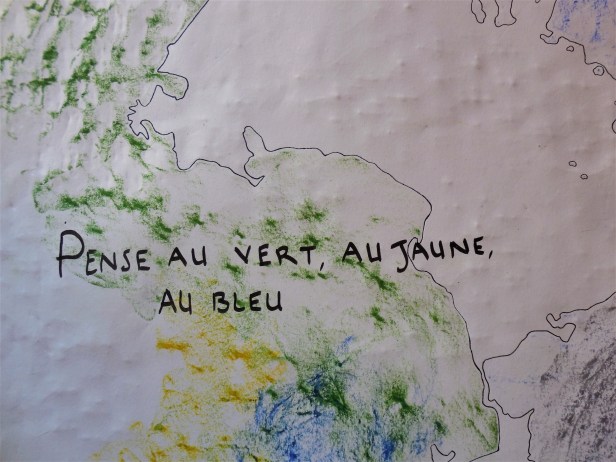 PENSE AU VERT, AU JAUNE,
AU BLEU